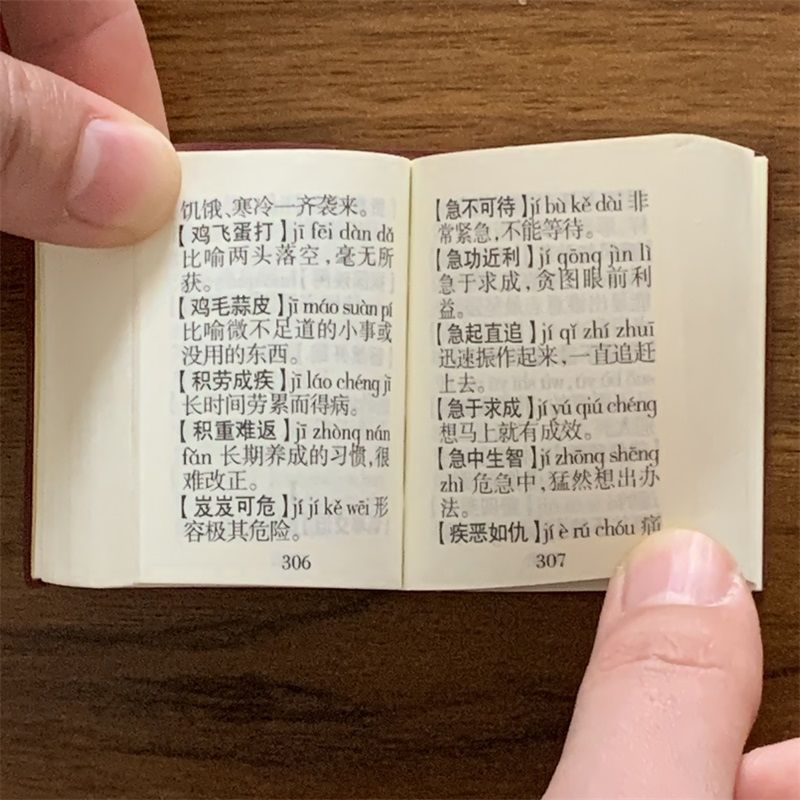 饥饿、寒冷一齐袭来。
【鸡飞蛋打】jī fēi dàn dǎ
比喻两头落空,毫无所
获。
【鸡毛蒜皮】jī máo suàn pí
比喻微不足道的小事或
没用的东西。
【积劳成疾】jī láo chéng jí
长时间劳累而得病。
【积重难返】jī zhòng nán
fǎn 长期养成的习惯,很
难改正。
【岌岌可危】jí jí kě wēi 形
容极其危险。
306
【急不可待】jí bù kě dài 非
常紧急,不能等待。
【急功近利】jí gōng jìn lì
急于求成,贪图眼前利
益。
【急起直追】jí qǐ zhí zhuī
迅速振作起来,一直追赶
上去。
【急于求成】jí yú qiú chéng
想马上就有成效。
【急中生智】jí zhōng shēng
zhì 危急中,猛然想出办
法。
【疾恶如仇】jí è rú chóu 痛
307